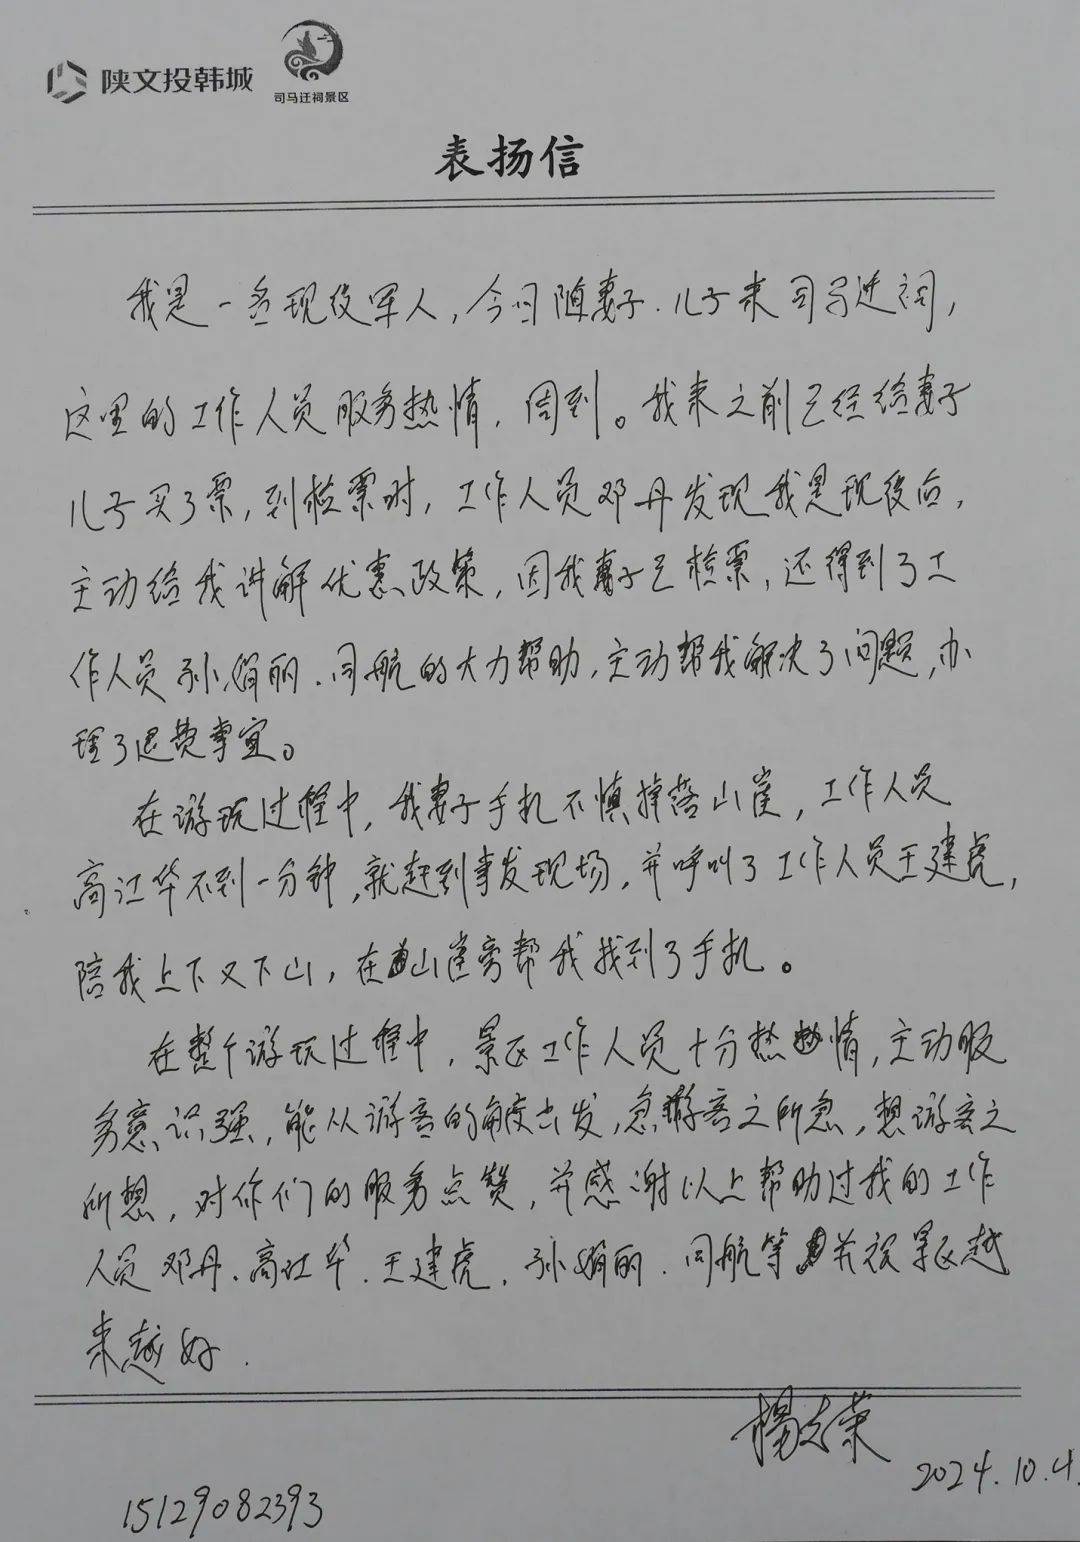 陕文投韩城
司马迁祠景区
表扬信
我是一名现役军人，今日随妻子、儿子来司马迁祠，
这里的工作人员服务热情，周到。我来之前已经给妻子
儿子买了票，到检票时，工作人员邓丹发现我是现役后，
主动给我讲解优惠政策，因我妻子已检票，还得到了工
作人员孙娟丽、同航的大力帮助，主动帮我解决了问题，办
理了退费事宜。
在游玩过程中，我妻子手机不慎掉落山崖，工作人员
高江华不到一分钟，就赶到事发现场，并呼叫了工作人员王建虎，
陪我上下又下山，在山崖旁帮我找到了手机。
在整个游玩过程中，景区工作人员十分热情，主动服
务意识强，能从游客的角度出发，急游客之所急，想游客之
所想，对你们的服务点赞，并感谢以上帮助过我的工作
人员邓丹、高江华、王建虎、孙娟丽、同航等 并祝景区越
来越好．
杨文荣
2024.10.4.
15129082393